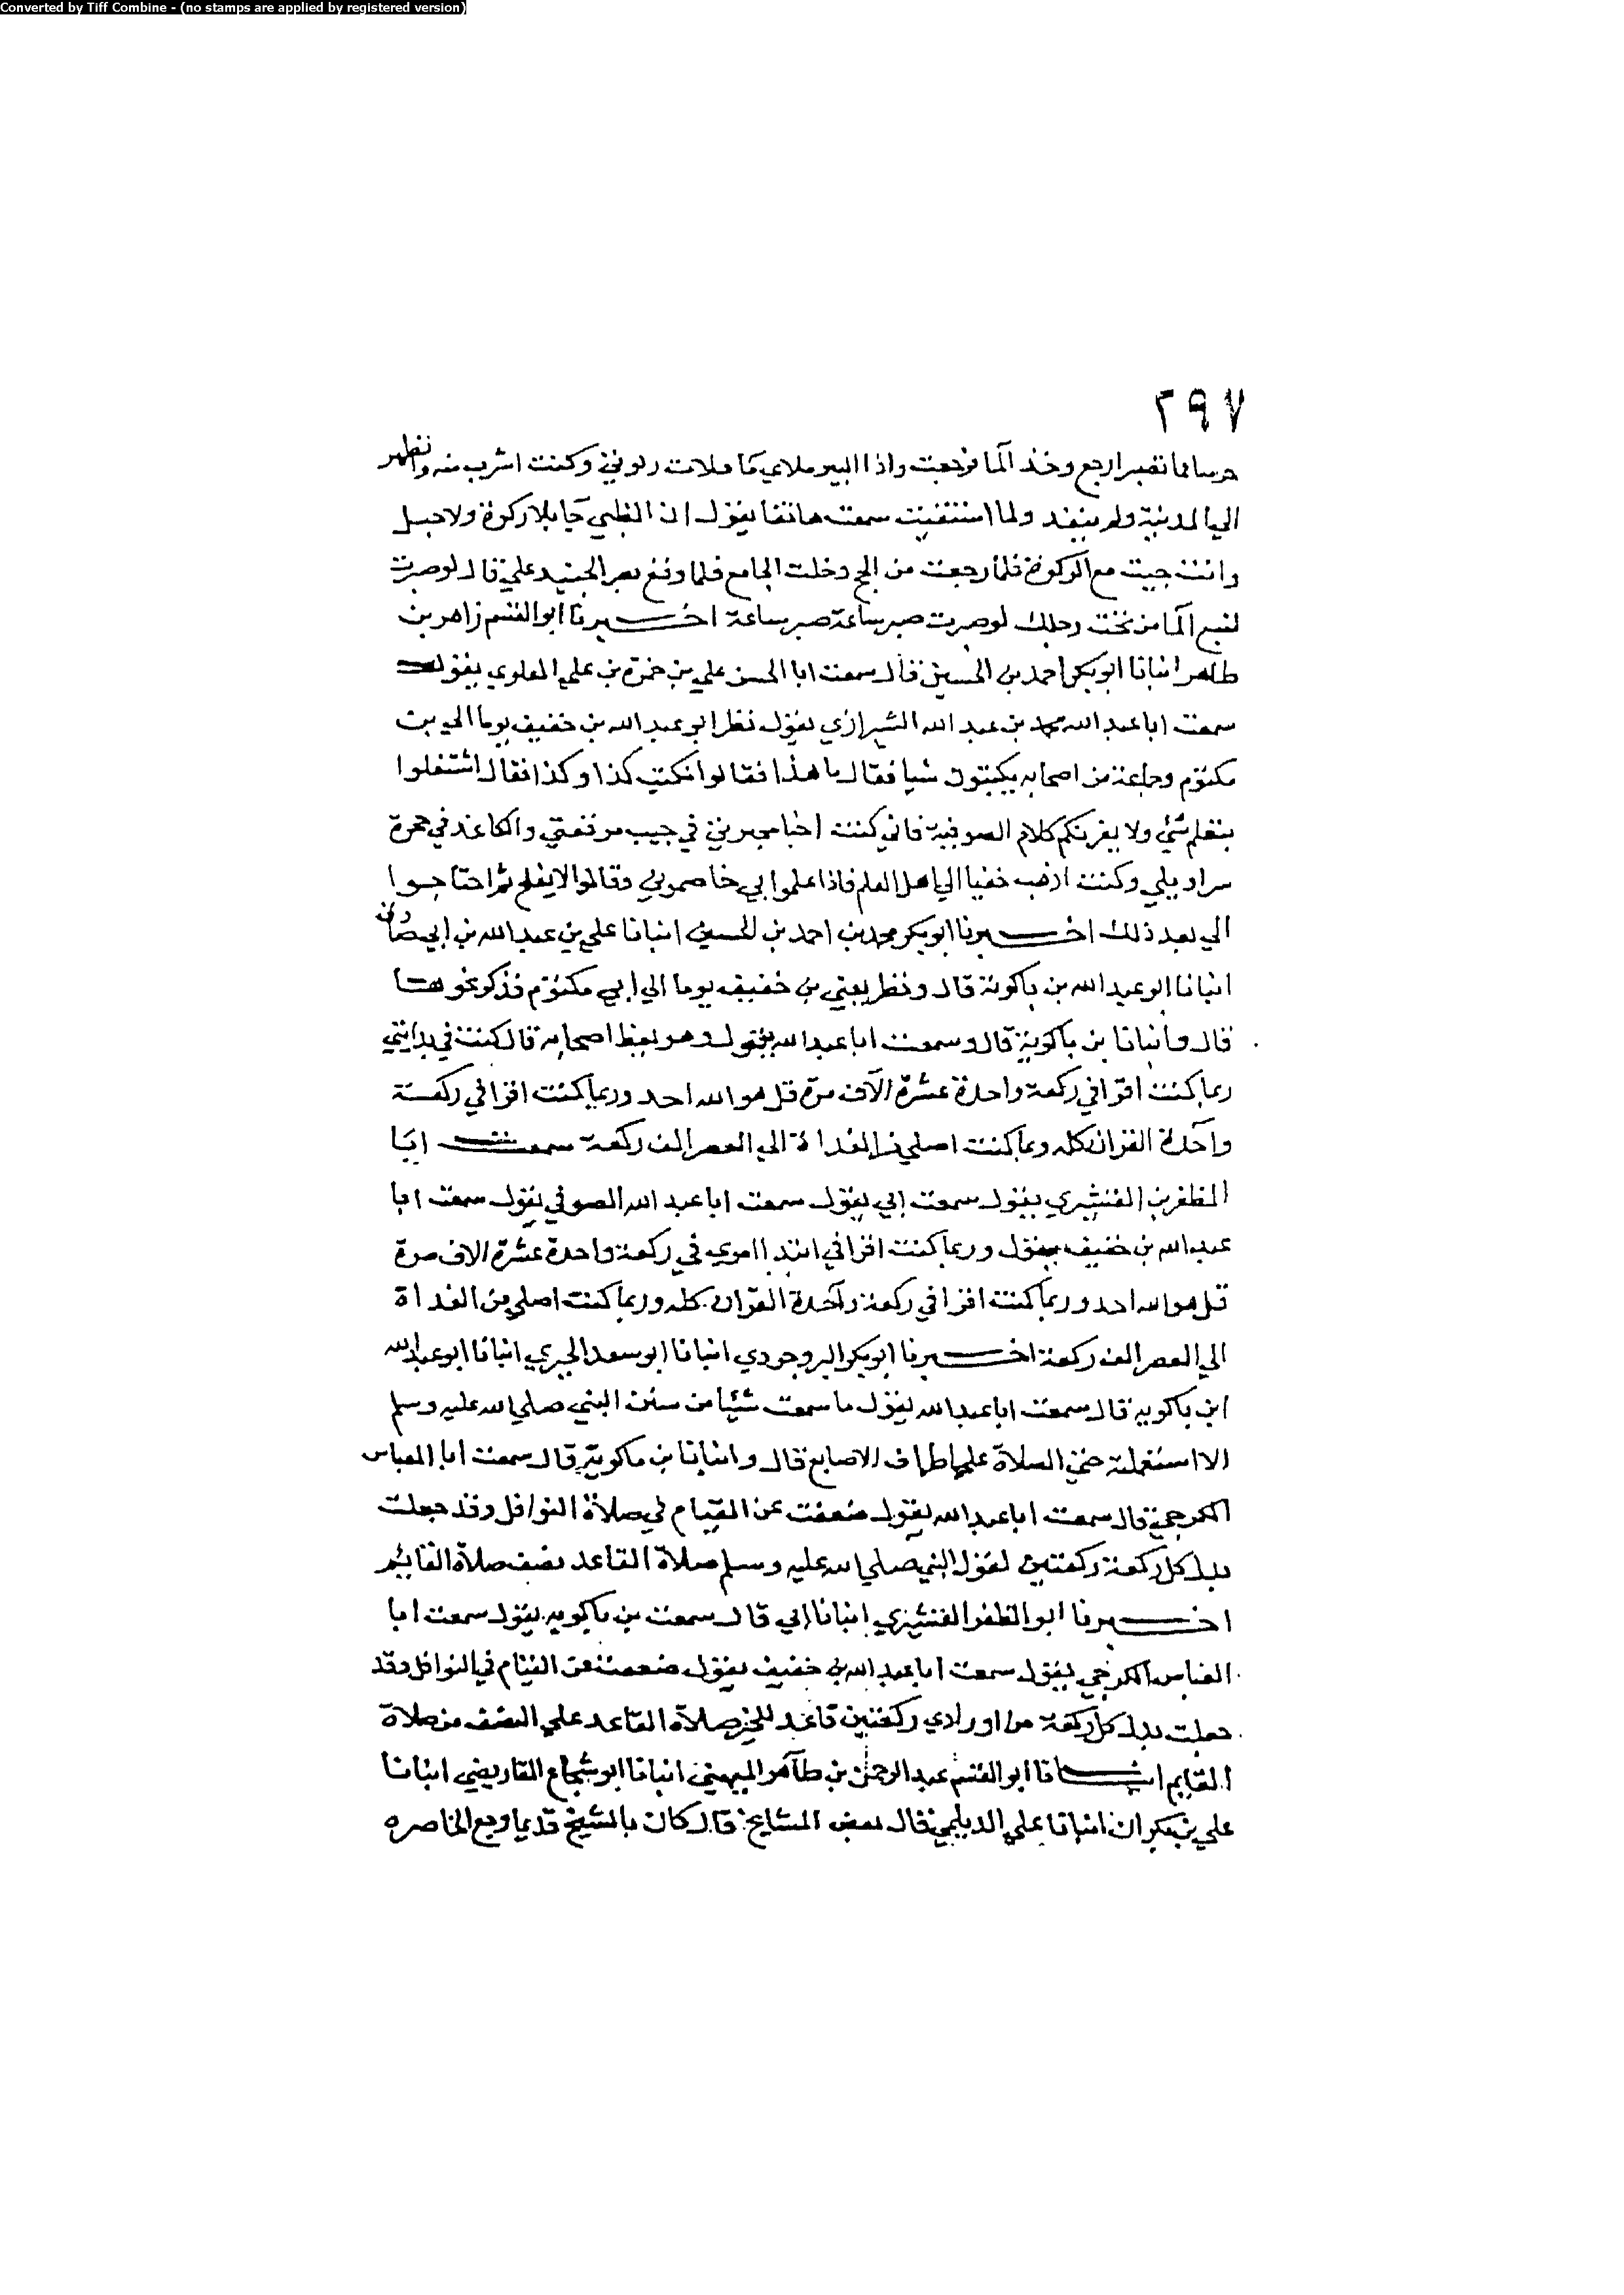 Converted by Tiff Combine - (no stamps are applied by registered version)
٢٩٧
فلم تصبر ارجع وخذ الما فرجعت واذا البير ملاي ما فملات ركوتي وكنت اشرب منه واتطهر
الي المدينة ولم ينفد ولما استقيت سمعت هاتفا يقول ان الظبي جا بلا ركوة ولا حبل
وانت جيت مع الركوة فلما رجعت من الحج دخلت الجامع فلما وقع بصر الجنيد علي قال لو صبرت
لنبع الما من تحت رجلك لو صبرت صبر ساعة صبر ساعة اخبرنا ابو القسم زاهر بن
طاهر انبانا ابو بكر احمد بن الحسين قال سمعت ابا الحسن علي بن حمزة بن علي العلوي يقول
سمعت ابا عبد الله محمد بن عبد الله الشيرازي يقول نظر ابو عبد الله بن خفيف يوما الي بن
مكتوم وجماعة من اصحابه يكتبون شيا فقال ما هذا فقالوا نكتب كذا وكذا فقال اشتغلوا
بتعلم شي ولا يغرنكم كلام الصوفية فاني كنت اخبا محبرتي في جيب مرقعتي والكاغد في حجزة
سراويلي وكنت اذهب خفيا الي اهل العلم فاذا علموا بي خاصموني وقالوا لا يفلح ثم احتاجوا
الي بعد ذلك اخبرنا ابو بكر محمد بن احمد بن الحسين انبانا علي بن عبد الله بن ابي صادق
انبانا ابو عبد الله بن باكوية قال ونظر يعني بن خفيف يوما الي ابي مكتوم فذكر نحوها
قال وانبانا بن باكوية قال وسمعت ابا عبد الله يقول وهو يعظ اصحابه قال كنت في بدايتي
ربما كنت اقرا في ركعة واحدة عشرة الآف مرة قل هو الله احد وربما كنت اقرا في ركعة
واحدة القران كله وربما كنت اصلي من الغداة الي العصر الف ركعة سمعت ابا
المظفر بن القشيري يقول سمعت ابي يقول سمعت ابا عبد الله الصوفي يقول سمعت ابا
عبد الله بن خفيف يقول وربما كنت اقرا في ابتدا امري في ركعة واحدة عشرة الاف مرة
قل هو الله احد وربما كنت اقرا في ركعة واحدة القران كله وربما كنت اصلي من الغداة
الي العصر الف ركعة اخبرنا ابو بكر البروجردي انبانا ابو سعد الحيري انبانا ابو عبد الله
ابن باكويه قال سمعت ابا عبد الله يقول ما سمعت شيا من سنن النبي صلي الله عليه وسلم
الا استعملته حتي الصلاة علي اطراف الاصابع قال وانبانا بن باكوية قال سمعت ابا العباس
الكرجي قال سمعت ابا عبد الله يقول ضعفت عن القيام في صلاة النوافل وقد جعلت
بدل كل ركعة ركعتين لقول النبي صلي الله عليه وسلم صلاة القاعد نصف صلاة القايم
اخبرنا ابو المظفر القشيري انبانا ابي قال سمعت بن باكويه يقول سمعت ابا
العباس الكرجي يقول سمعت ابا عبد الله بن خفيف يقول ضعفت عن القيام في النوافل وقد
جعلت بدل كل ركعة من اورادي ركعتين قاعد للخبر صلاة القاعد علي النصف من صلاة
القايم انبانا ابو القسم عبد الرحمن بن طاهر الميهني انبانا ابو شجاع المقاريضي انبانا
علي بن بكران انبانا علي الديلمي قال بعض المشايخ قال كان بالشيخ قديما وجع الخاصره